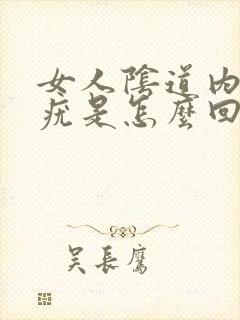 女人陰道內
疣是怎麼回
吳長鷹